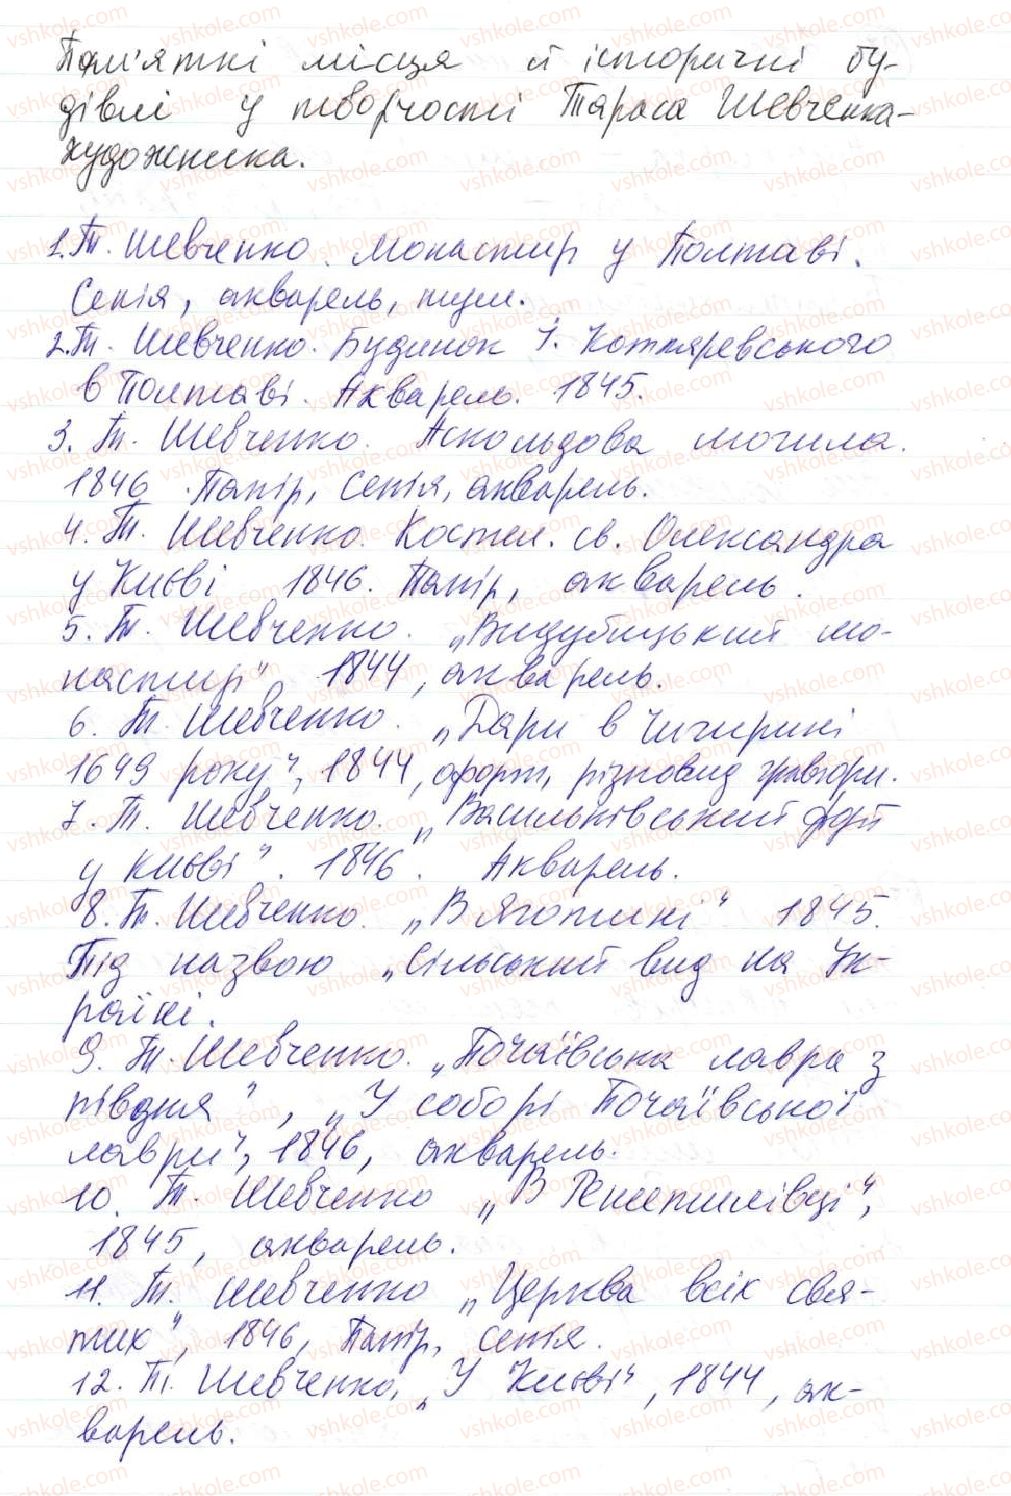 Пам'ятні місця й історичні бу-
дівлі у творчості Тараса Шевченка-
художника.
1. Т. Шевченко. Монастир у Полтаві.
Сепія, акварель, туш.
2. Т. Шевченко. Будинок І. Котляревського
в Полтаві. Акварель. 1845.
3. Т. Шевченко. Аскольдова могила.
1846. Папір, сепія, акварель.
4. Т. Шевченко. Костел. св. Олександра
у Києві 1846. Папір, акварель.
5. Т. Шевченко. „Видубицький мо-
настир", 1844, акварель.
6. Т. Шевченко. „Дари в Чигирині
1649 року", 1844, офорт, різновид гравюри.
7. Т. Шевченко. „Васильківський форт
у Києві". 1846. Акварель.
8. Т. Шевченко. „В Яготині" 1845.
Під назвою „Сільський вид на Ук-
раїні.
9. Т. Шевченко. „Почаївська лавра з
півдня", „У соборі Почаївської
лаври", 1846, акварель.
10. Т. Шевченко „В Решетилівці",
1845, акварель.
11. Т. Шевченко „Церква всіх свя-
тих", 1846, Папір, сепія.
12. Т. Шевченко, „У Києві", 1844, ак-
варель.